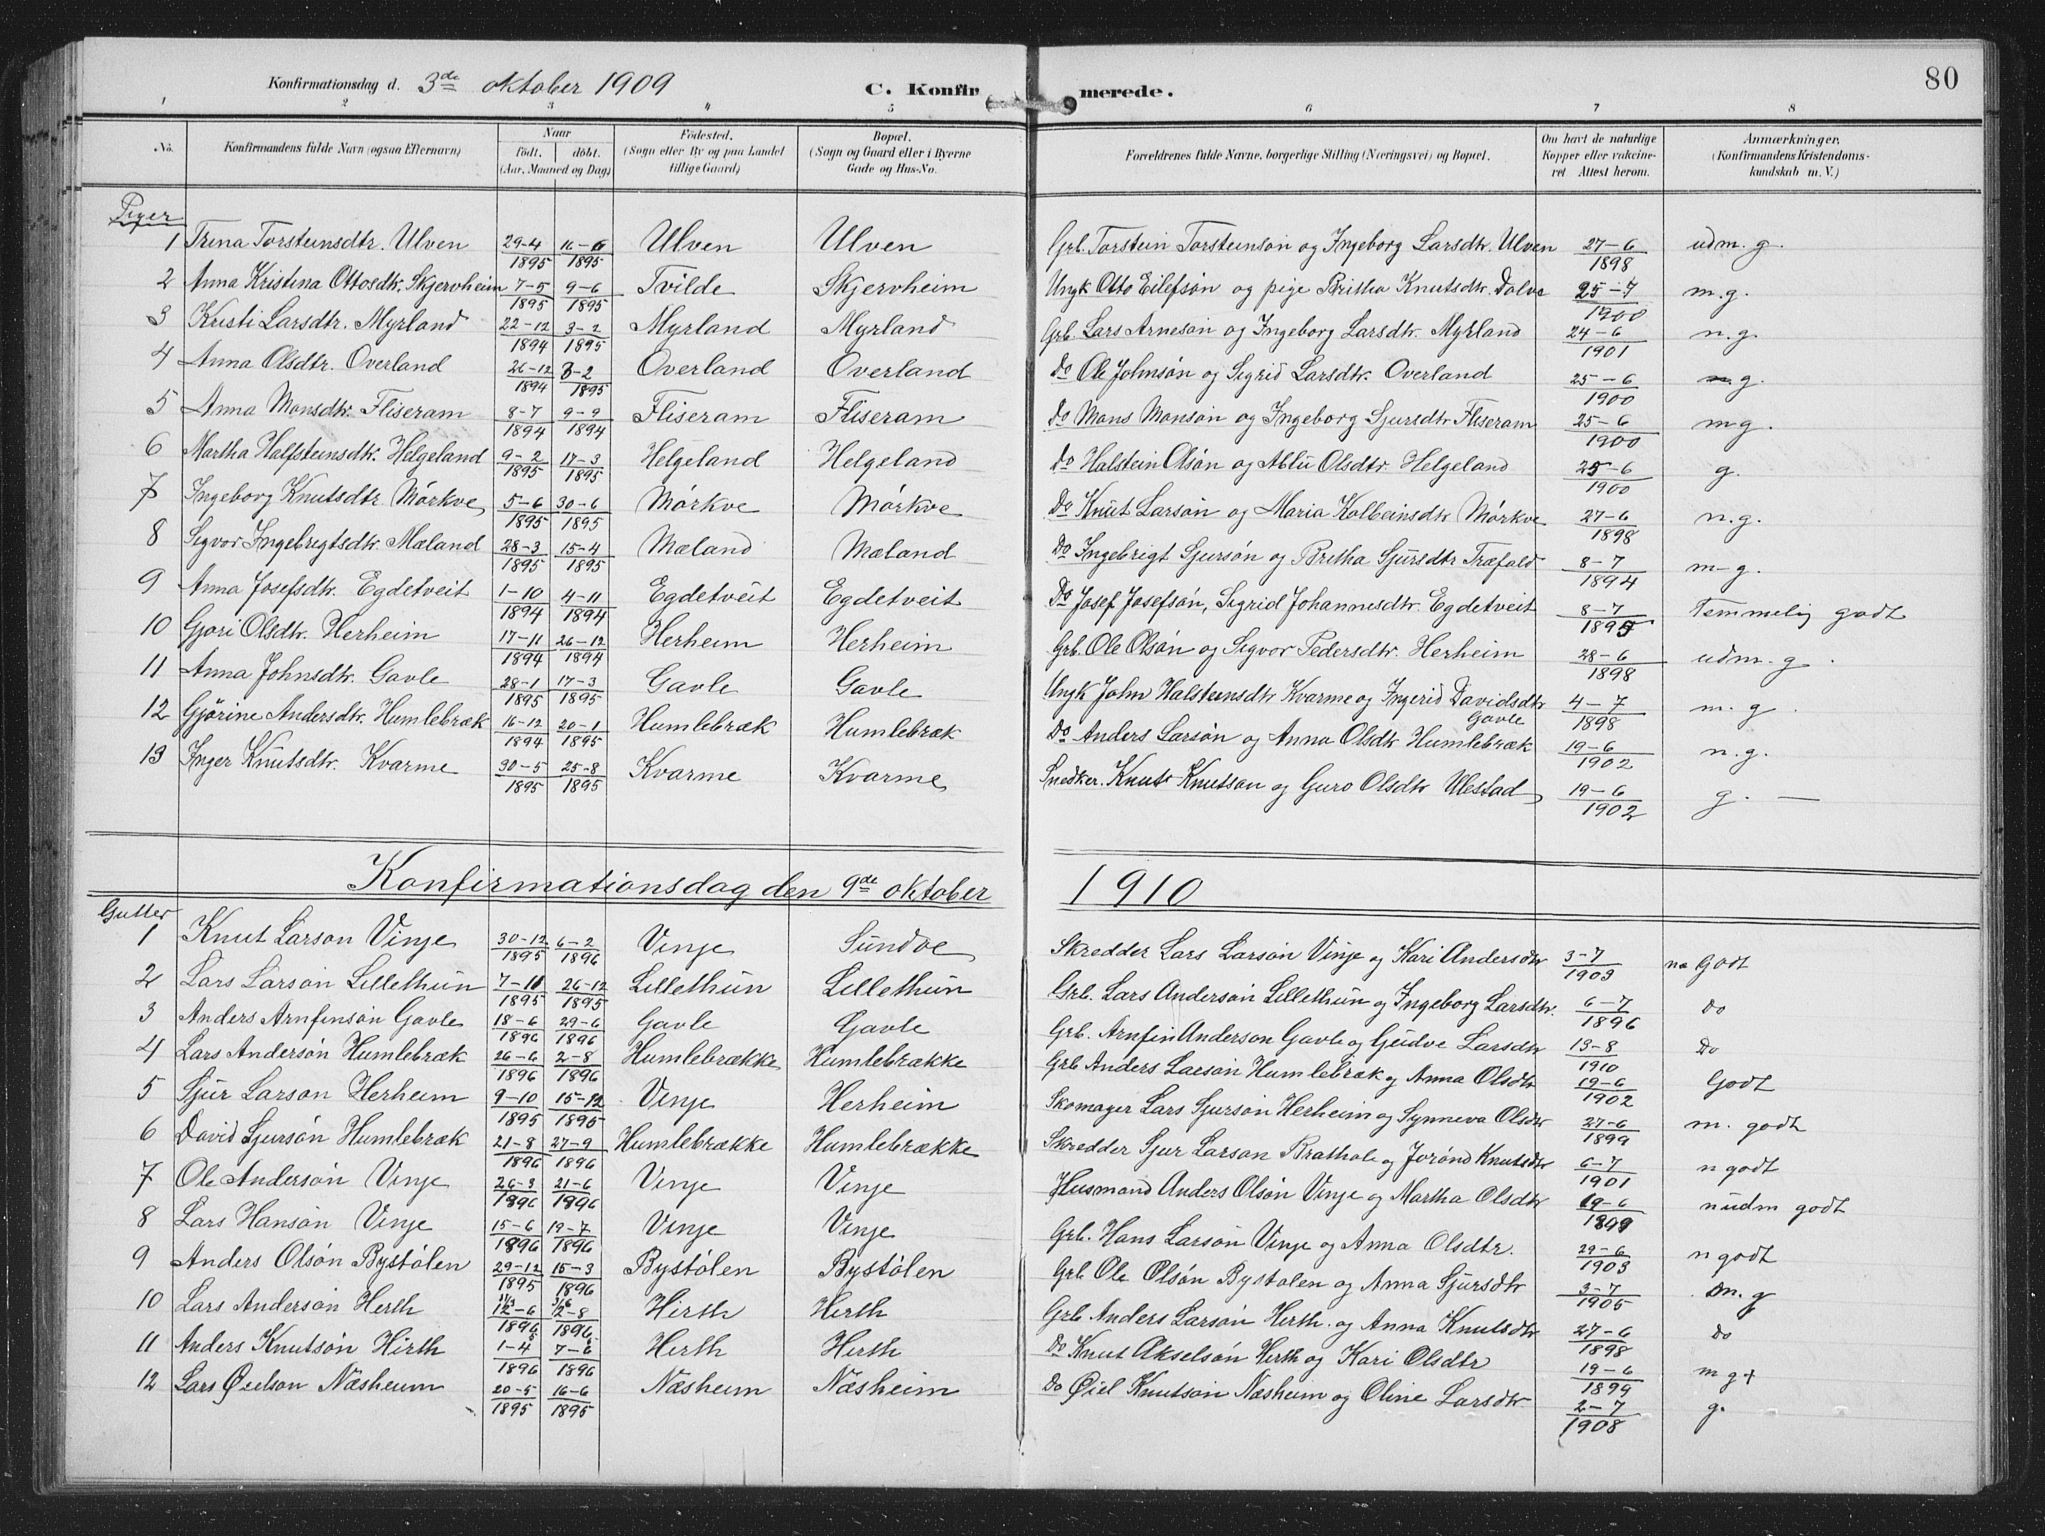 Konfirmationsdag d. 3de oktober 1909 C. Konfirmerede. 80
1 2 3 4 5 6 7 8
No. Konfirmandens fulde Navn (ogsaa Efternavn) Naar födt. döbt. (Aar, Maaned og Dag) Födested. (Sogn eller By og paa Landet tillige Gaard) Bopæl. (Sogn og Gaard eller i Byerne Gade og Hus-No. Forældrenes fulde Navne, borgerlige Stilling (Næringsvei) og Bopæl. Om havt de naturlige Kopper eller vakcineret Attest herom. Anmærkninger. (Konfirmandens Kristendomskundskab m. V.)
Piger
1 Trina Torsteinsdtr. Ulven 29-4 1895 16-6 1895 Ulven Ulven Grb. Torstein Torsteinson og Ingeborg Larsdtr. Ulven 27-6 1898 udm. g.
2 Anna Kristina Ottosdtr. Skjervheim 7-5 1895 9-6 1895 Tvilde Skjervheim Ungk Otto Eilefsön og pige Britha Knutsdtr. Dolve 25-7 1900 m.g.
3 Kristi Larsdtr. Myrland 22-12 1894 3-2 1895 Myrland Myrland Grb. Lars Arnesön og Ingeborg Larsdtr. Myrland 24-6 1901 n.g.
4 Anna Olsdtr. Overland 26-12 1894 3-2 1895 Overland Overland Do Ole Johnsön og Sigrid Larsdtr. Overland 25-6 1900 g.
5 Anna Monsdtr. Fliseram 8-7 1894 9-9 1894 Fliseram Fliseram Do Mons Monsön og Ingeborg Sjursdtr Fliseram 25-6 1900 mg.
6 Martha Halfsteinsdtr. Helgeland 9-2 1895 17-3 1895 Helgeland Helgeland Do Halstein Olsön og Ablu Olsdtr. Helgeland 25-6 1900 g.
7 Ingeborg Knutsdtr Mörkve 5-6 1895 30-6 1895 Mörkve Mörkve Do Knut Larsön og Maria Kolbeinsdtr Mörkve 27-6 1898 n.g.
8 Sigvor Ingebrigtsdtr. Mæland 28-3 1895 15-4 1895 Mæland Mæland Do Ingebrigt Sjursön og Britha Sjursdtr Træfald 8-7 1894 m-g.
9 Anna Josefsdtr. Egdetveit 1-10 1894 4-11 1894 Egdetveit Egdetveit Do Josef Josefsön, Sigrid Johannesdtr. Egdetveit 8-7 1895 Temmelig godt
10 Gjori Olsdtr. Herheim 17-11 1894 26-12 1894 Herheim Herheim Grb. Ole Olsön og Sigvor Pedersdtr. Herheim 28-6 1898 udm. g.
11 Anna Johnsdtr. Gavle 28-1 1895 17-3 1895 Gavle Gavle Ungk John Halsteinsdtr Kvarme og Ingerid Davidsdtr Gavle 4-7 1898 m.g.
12 Gjörine Andersdtr. Humlebræk 16-12 1894 20-1 1895 Humlebræk Humlebræk Do Anders Larsön og Anna Olsdtr Humlebræk 19-6 1902 n.g.
13 Inger Knutsdtr. Kvarme 30-5 1895 25-8 1895 Kvarme Kvarme Snedker. Knut Knutson og Guro Olsdtr Ulestad 19-6 1902 g. —
Konfirmationsdag den 9de oktober 1910
Gutter
1 Knut Larson Vinje 30-12 1895 6-2 1896 Vinje Sundve Skredder Lars Larsön Vinje og Kari Andersdtr 3-7 1903 na Godt
2 Lars Larsön Lillethun 7-11 1895 26-12 1895 Lillethun Lillethun Grb. Lars Andersön Lillethun og Ingeborg Larsdtr. 6-7 1896 Do
3 Anders Arnfinsön Gavle 18-6 1896 29-6 1896 Gavle Gavle Grb. Arnfin Anderson Gavle og Guidve Larsdtr 13-8 1910 Do
4 Lars Andersön Humlebræk 26-6 1896 2-8 1896 Humlebrække Humlebrække Grb Anders Larsön Humlebræk og Anna Olsdtr 19-6 1902 Godt
5 Sjur Larson Herheim 9-10 1895 15-12 1895 Vinje Herheim Skomager Lars Sjursön Herheim og Synneva Olsdtr 27-6 1899 m. godt
6 David Sjursön Humlebræk 21-8 1896 27-9 1896 Humlebrække Humlebrække Skredder Sjur Larson Brathole og Jorönd Knutsdtr 6-7 1901 n godt
7 Ole Andersön Vinje 26-3 1896 21-6 1896 Vinje Vinje Husmand Anders Olsön Vinje og Martha Olsdtr 19-6 1899 nudm godt
8 Lars Hansön Vinje 15-6 1896 19-7 1896 Vinje Vinje Grb. Hans Larsön Vinje og Anna Olsdtr. 29-6 1903 n godt
9 Anders Olsön Bystölen 29-12 1895 15-3 1896 Bystölen Bystölen Grb Ole Olsön Bystolen og Anna Sjursdtr 3-7 1905 m.g
10 Lars Andersön Hirth 12-6 1896 2-8 1896 Hirth Hirth Grb Anders Larsön Hirth. og Anna Knutsdtr 27-6 1898 Do
11 Anders Knutsön Hirth 1-4 1896 7-6 1896 Hirth Hirth Do Knut Akselsön Hirth og Kari Olsdtr 19-6 1899 mg+
12 Lars Öielson Næsheim 20-5 1895 16-6 1895 Næsheim Næsheim Do Öiel Knutsön Næsheim og Oline Larsdtr 2-7 1908 g.